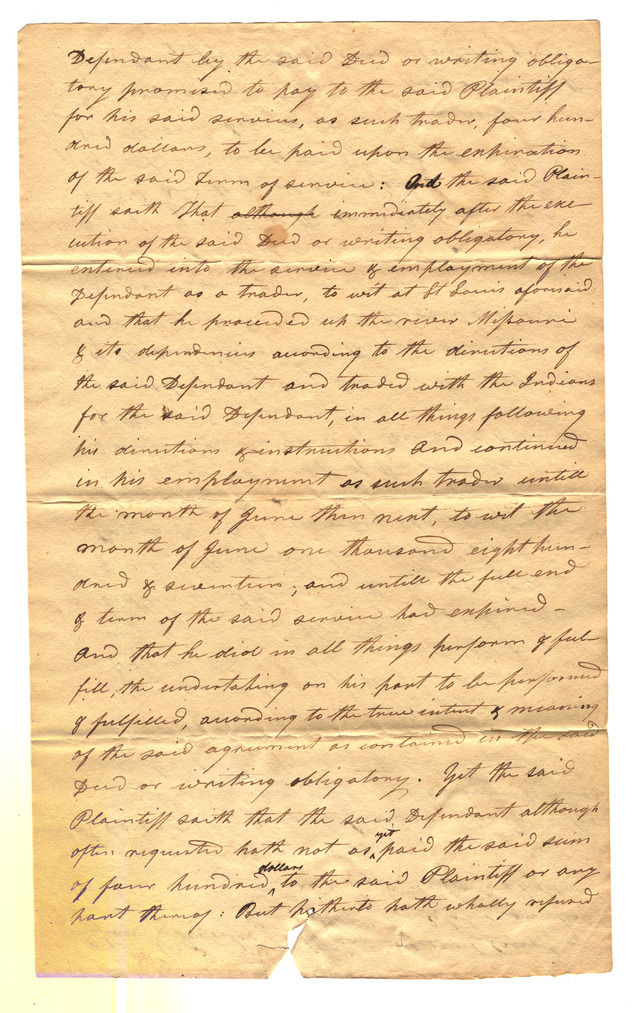 Defendant by the said Deed or writing obliga-
tory promised to pay to the said Plaintiff
for his said services, as such trader, four hun-
dred dollars, to be paid upon the expiration
of the said Term of service: And the said Plain-
tiff saith That although immediately after the exe-
cution of the said Deed or writing obligatory, he
entered into the service & employment of the
Defendant as a trader, to wit at St Louis aforesaid
and that he proceeded up the river Missouri
& its dependencies according to the directions of
the said Defendant and traded with the Indians
for the said Defendant, in all things following
his directions & instructions and continued
in his employment as such trader untill
the month of June then next, to wit the
month of June one thousand eight hun-
dred & seventeen; and untill the full end
& term of the said service had expired-
And that he did in all things perform & ful-
fill, the undertaking on his part to be performed
& fulfilled, according to the true intent & meaning
of the said agreement as contained in the said
Deed or writing obligatory. Yet the said
Plaintiff saith that the said Defendant although
often requested hath not as yet paid the said sum
of four hundred dollars to the said Plaintiff or any
part thereof: But hitherto hath wholly refused